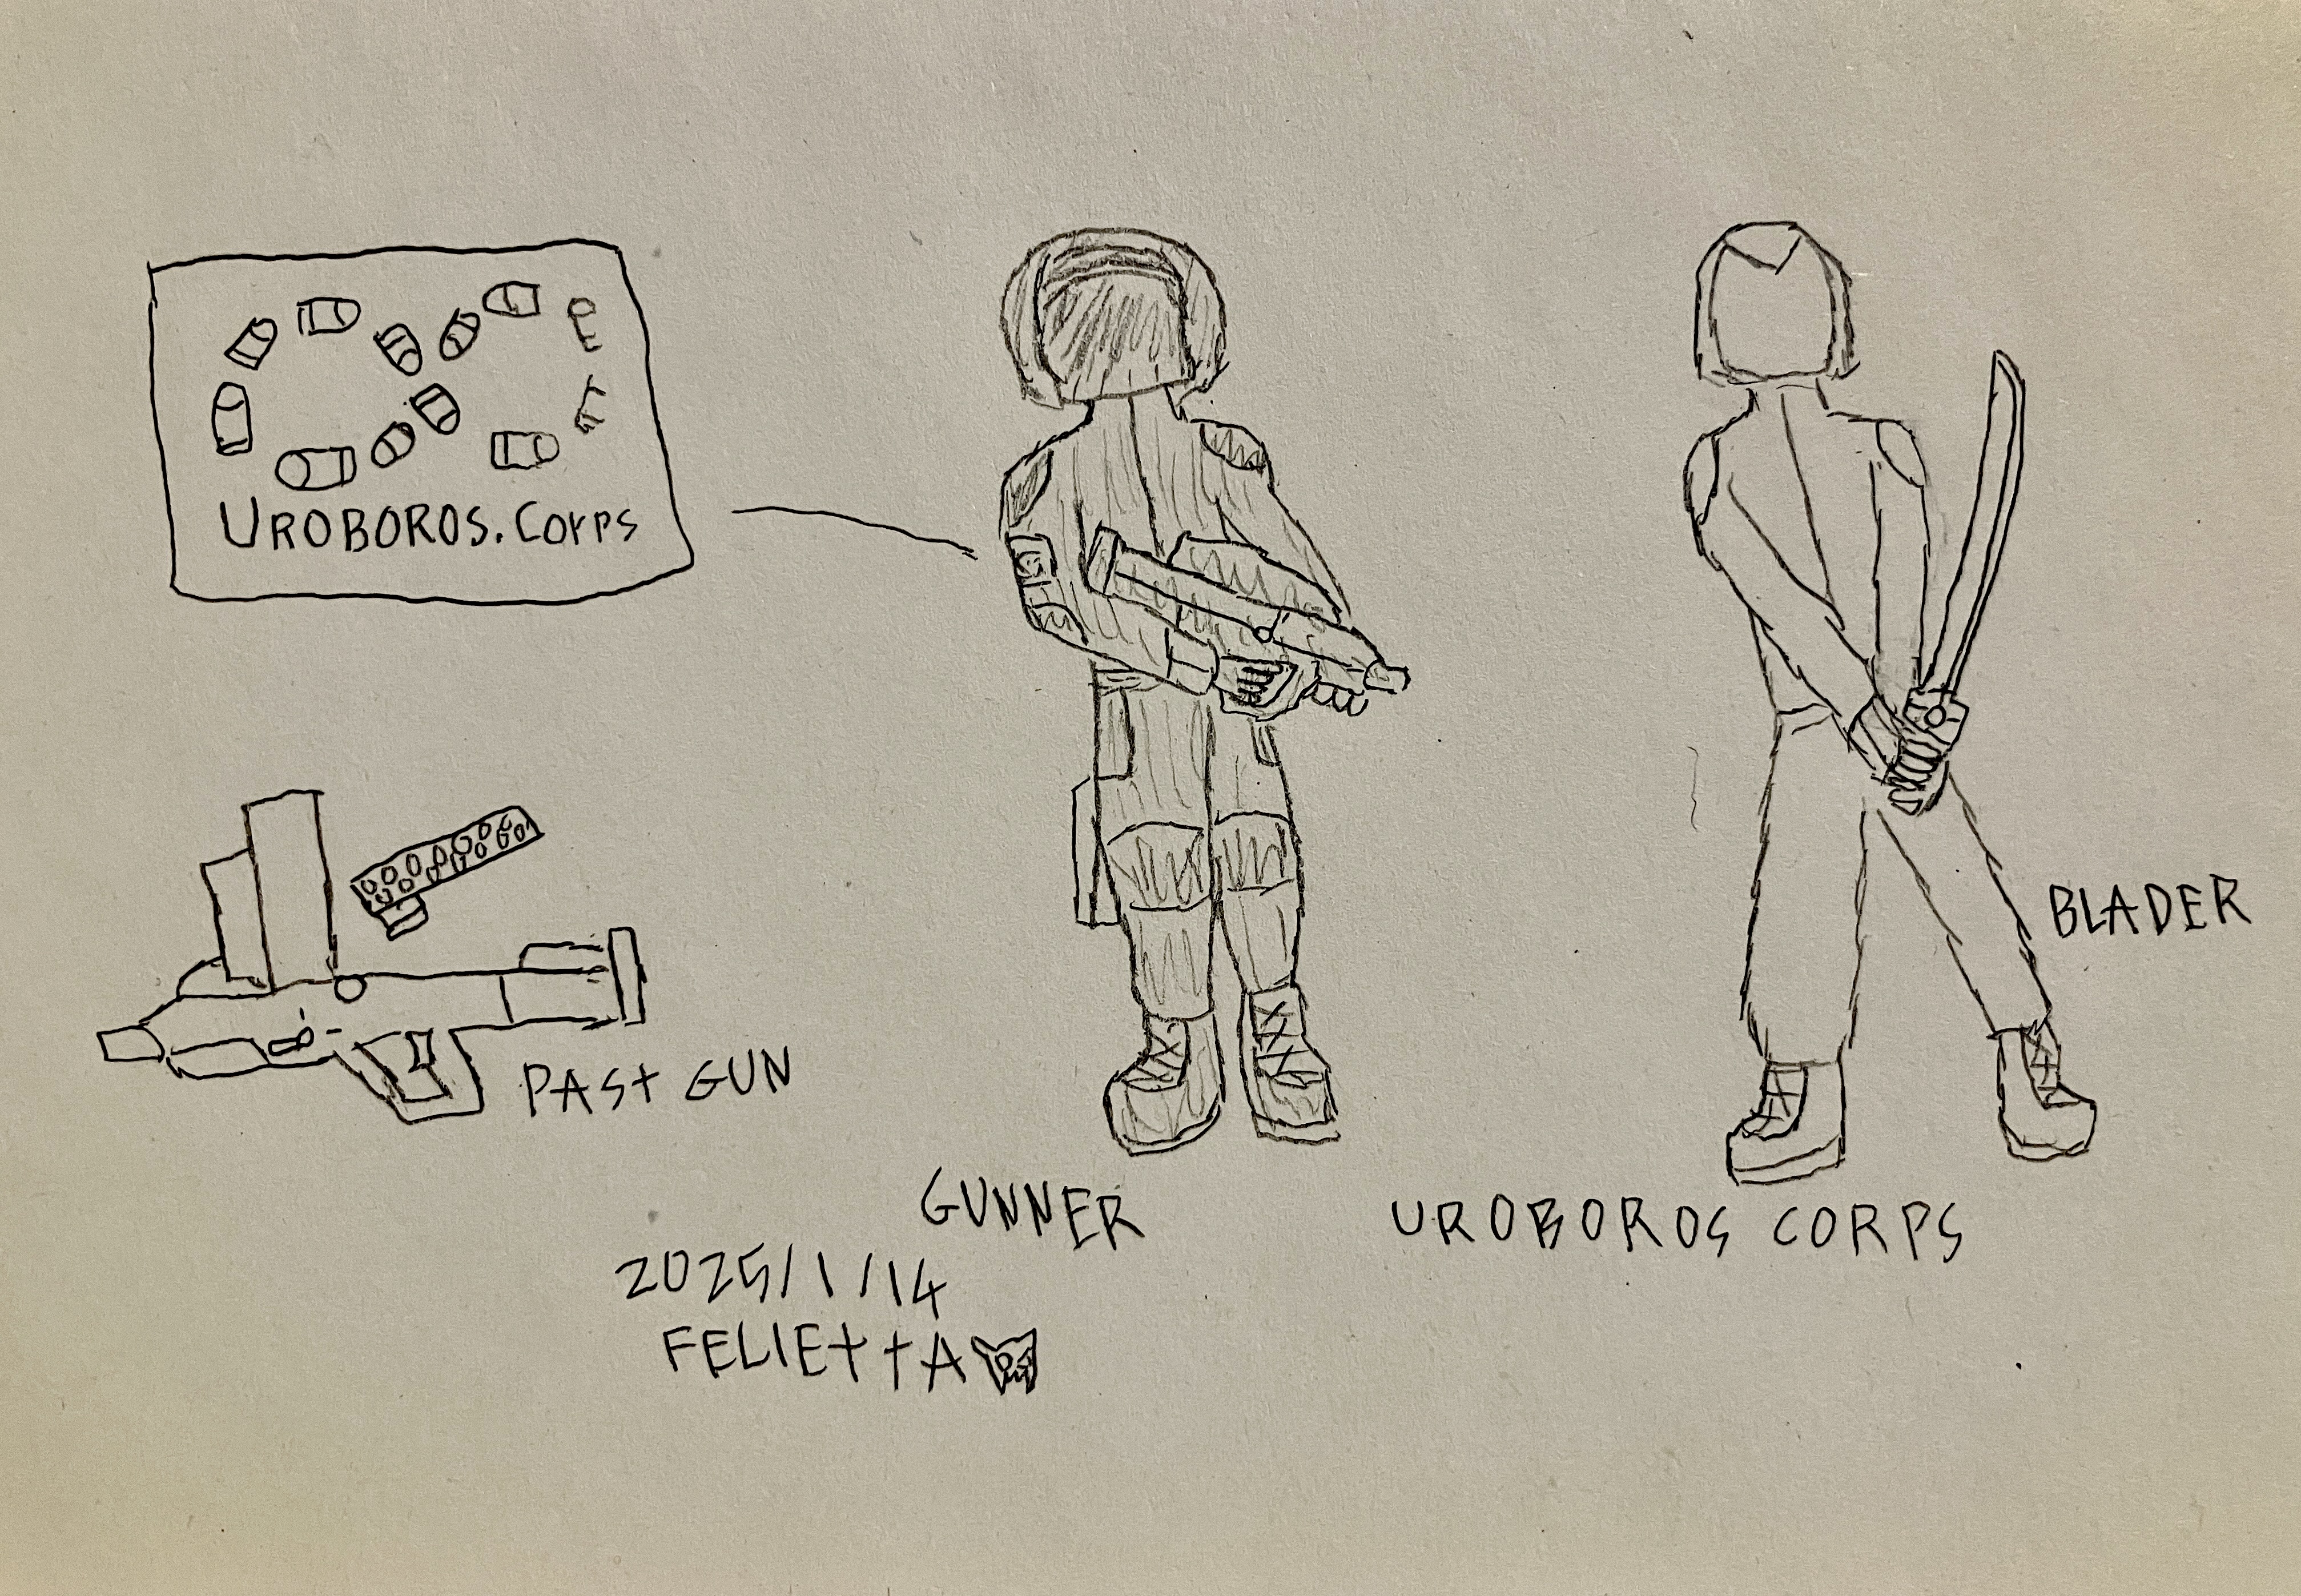 UROBOROS.Corps
PASt GUN
BLADER
GUNNER
UROBOROS CORPS
2025/1/14
FELIEttA